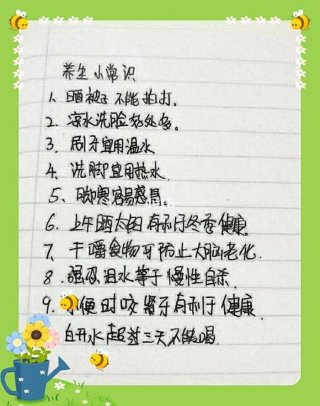 养生小常识
1、晒被子不能拍打.
2、凉水洗脸好处多。
3、刷牙宜用温水
4、洗脚宜用热水.
5、脚寒容易感冒。
6、上午晒太阳有利于冬季健康.
7、干嚼食物可防止大脑老化.
8、强忍泪水等于慢性自杀.
9、小便时咬紧牙有利于健康.
白开水超过三天不能喝.